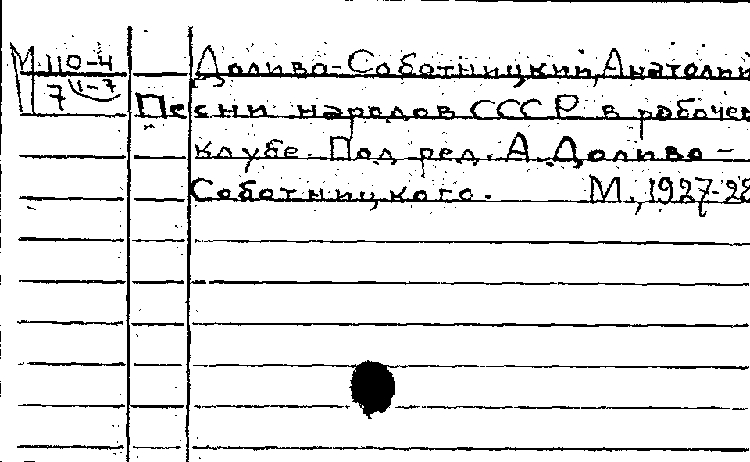 М.110-4
7 1-7
Доливо-Соботницкий, Анатолий
Песни народов СССР в рабочем
клубе. Под ред. А. Доливо-
Соботницкого. М., 1927-28